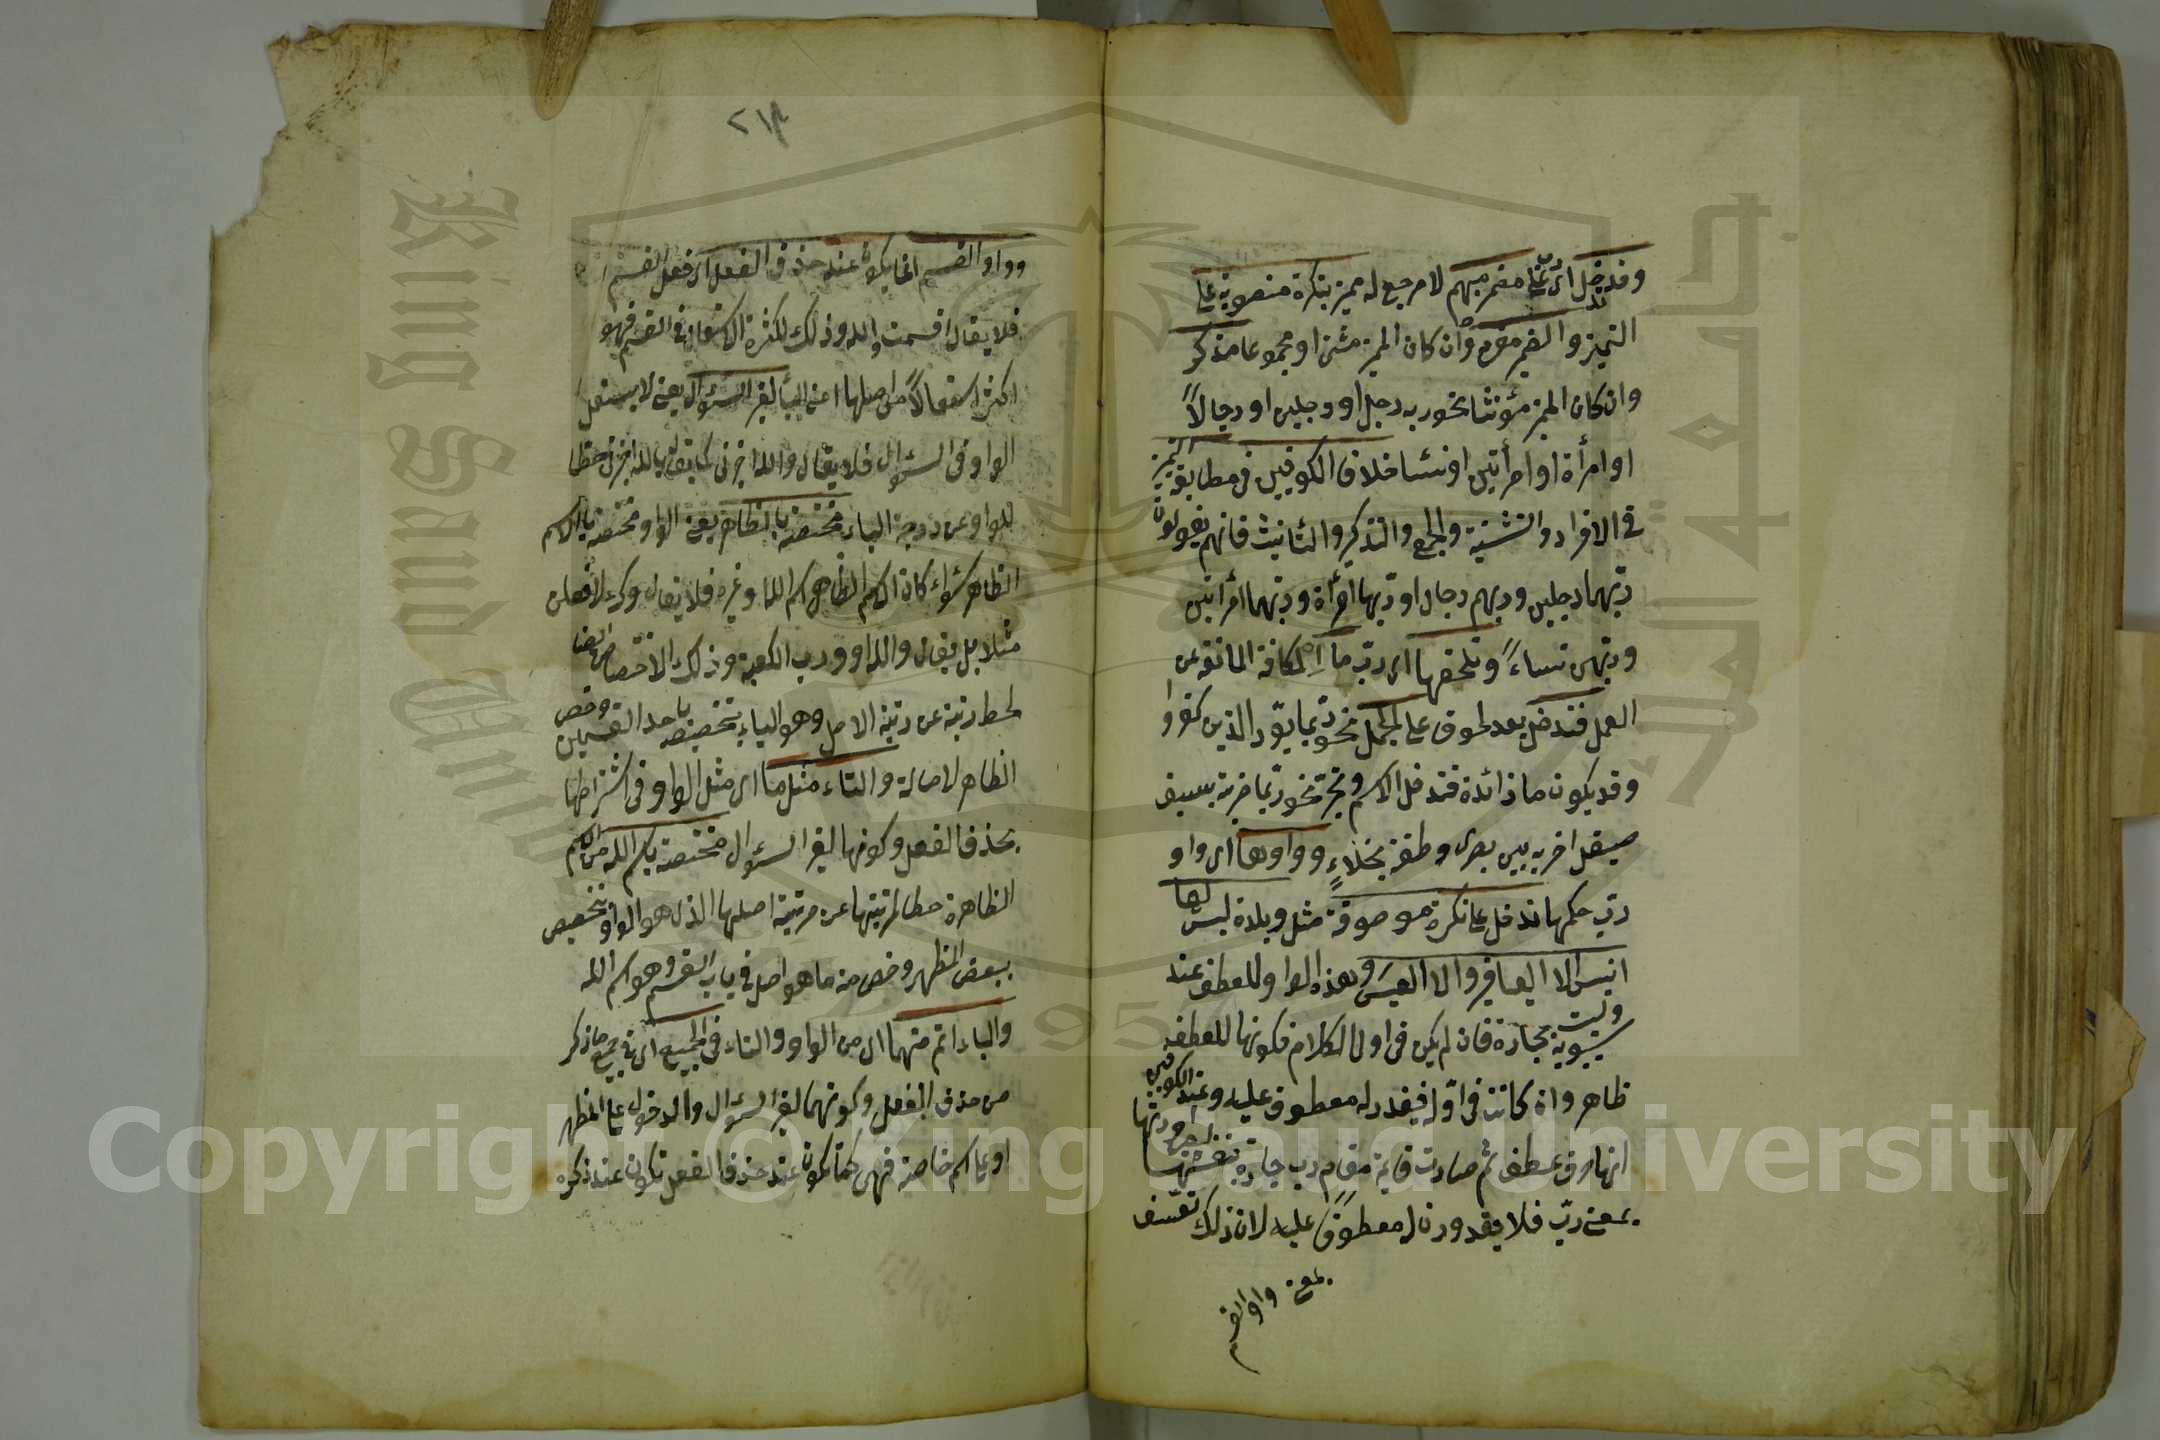 وقد تدخل اى رب على مضمر مبهم لا مرجع له مميز بنكرة منصوبة على
التميز والضمير مفرد وان كان المميز مثنى او مجموعا مذكر
وان كان المميز مؤنثا نحو ربه رجلا او رجلين او رجالاً
او امرأة او امرأتين او نساء خلافا للكوفيين فى مطابقة التميز
فى الافراد والتثنية والجمع والتذكير والتانيث فانهم يقولون
ربهما رجلين وربهم رجالا او ربها امرأة وربهما امرأتين
وربهن نساءً وتلحقها اى رب ما الكافة المانعة عن
العمل فتدخل بعد لحوق على الجمل نحو ربما يود الذين كفروا
وقد يكون ما زائدة فتدخل الاسم وتجر نحو ربما ضربة بسيف
صيقل اضربه بين بصرى وطعنة نجلاءٍ وواوها اى واو
رب حكمها تدخل على نكرة موصوفة مثل وبلدة ليس لها
انيس الا اليعافير والا العيس وهذه الواو للعطف عند
سيبويه وليست بجارة فان لم يكن فى اول الكلام فكونها للعطف
ظاهر وان كانت فى اوله فيقدر له معطوف عليه وعند الكوفيين
انها حرف عطف ثم صارت قايمة مقام رب جارة بنفسها
بمعنى رب فلا يقدرون له معطوفا عليه لان ذلك تعسف
بمعنى واو القسم
٢١٣
وواو القسم انما يكون عند حذف الفعل اى فعل القسم
فلا يقال اقسمت والله وذلك لكثرة استعمال فى القسم فهو
اكثر استعمالاً من اصلها اعنى الباء لغير السؤال يعنى لا يستعمل
الواو فى السؤال فلا يقال والله اخبرنى كما يقال بالله اخبرنى حطا
للواو عن درجة الباء مختصة بالظاهر يعنى الواو مختصة بالاسم
الظاهر سواء كان الاسم الظاهر اسم الله او غيره فلا يقال وك لافعلن
مثلا بل يقال والله او ورب الكعبة وذلك الاختصاص ايضا
لحط رتبة عن رتبة الاصل وهو الباء بتخصيصه باحد القسمين وخص
الظاهر لاصالة والتاء مثلها اى مثل الواو فى اشتراطها
بحذف الفعل وكونها لغير السؤال مختصة باسم الله من الاسم
الظاهرة حطا لمرتبتها عن مرتبة اصلها الذى هو الواو بتخصيص
ببعض المظهر وخص منه ما هو اصل فى باب القسم وهو اسم الله
والباء اعم منهما اى من الواو والتاء فى الجميع اى فى جميع ما ذكر
من حذف الفعل وكونهما لغير السؤال والدخول على المظهر
او على اسم خاصة فهى كما تكون عند حذف الفعل تكون عند ذكره
King Saud University
جامعة الملك سعود
1957
Copyright © King Saud University